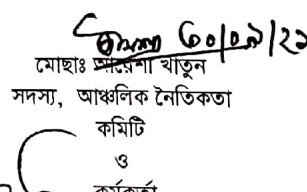 ৩০/০৯/২১
মোছাঃ আয়েশা খাতুন
সদস্য, আঞ্চলিক নৈতিকতা
কমিটি
ও
কর্মকর্তা